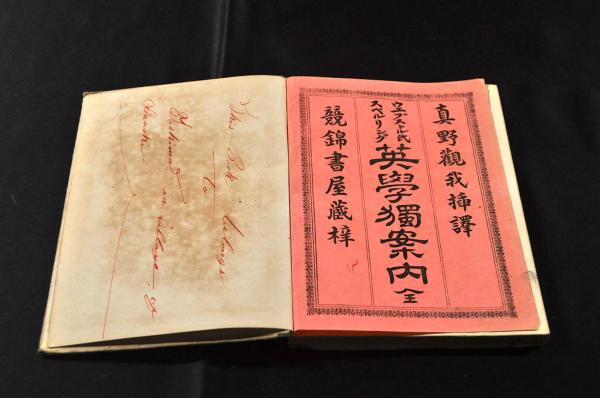 This Book belongs
to
in village of
真野觀我挿譯
ウエブストル氏
スペルリング
英學獨案内 全
競錦書屋藏梓